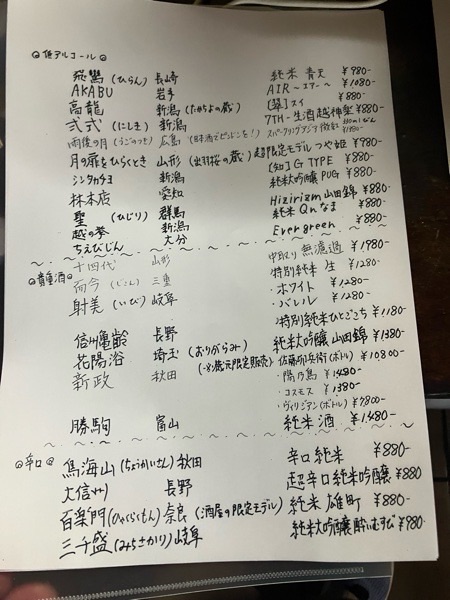 ◎低アルコール◎
飛鸞 (ひらん) 長崎 純米 青天 ¥980-
AKABU 岩手 AIR ～エアー～ ¥1080-
高龍 新潟 (たかちよの蔵) スイ ¥880-
弌式 (にしき) 新潟 7TH-生酒 越神楽 ¥880-
雨後の月 (うごのつき) 広島 スパークリング
月の扉をひらくとき 山形 (出羽桜の蔵) 超限定モデル つや姫 ¥980-
シンタカチヨ 新潟 G TYPE ¥880-
林本店 純米大吟醸 PUG ¥880-
愛知 Hizirizm 山田錦 ¥880-
聖 (ひじり) 群馬 純米 Qnなま ¥880-
越の拳 新潟 Evergreen ¥880-
ちえびじん 大分
◎貴重酒◎
十四代 山形 中取り 無濾過 ¥1980-
而今 (じこん) 三重 特別純米 生 ¥1280-
射美 (いび) 岐阜 ・ホワイト ¥1280-
・バレル ¥1280-
信州亀齢 長野 特別純米 ひとごこち ¥1180-
花陽浴 埼玉 (おりがらみ) 純米大吟醸 山田錦 ¥1380-
新政 秋田 (蔵元限定販売) 佐藤卯兵衛 (ボトル) ¥10800-
・陽乃鳥 ¥1480-
・コスモス ¥1380-
・ヴィリジアン (ボトル) ¥7800-
勝駒 富山 純米酒 ¥1480-
◎辛口◎
鳥海山 (ちょうかいさん) 秋田 辛口純米 ¥880-
大信州 長野 超辛口純米吟醸 ¥880-
百楽門 (ひゃくらくもん) 奈良 (酒屋の限定モデル) 純米 雄町 ¥880-
三千盛 (みちさかり) 岐阜 純米大吟醸 酔いむすび ¥980-